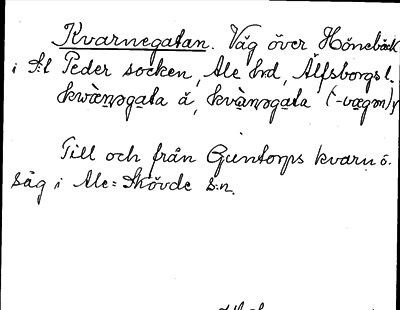 Kvarnegatan. Väg över Hönebäck
i S:t Peder socken, Ale hd, Älfsborgs l.
kwæ̀ṇəgata å, kvàṇəgata (-vægən)
Till och från Guntorps kvarn o.
såg i Ale-Skövde s:n.